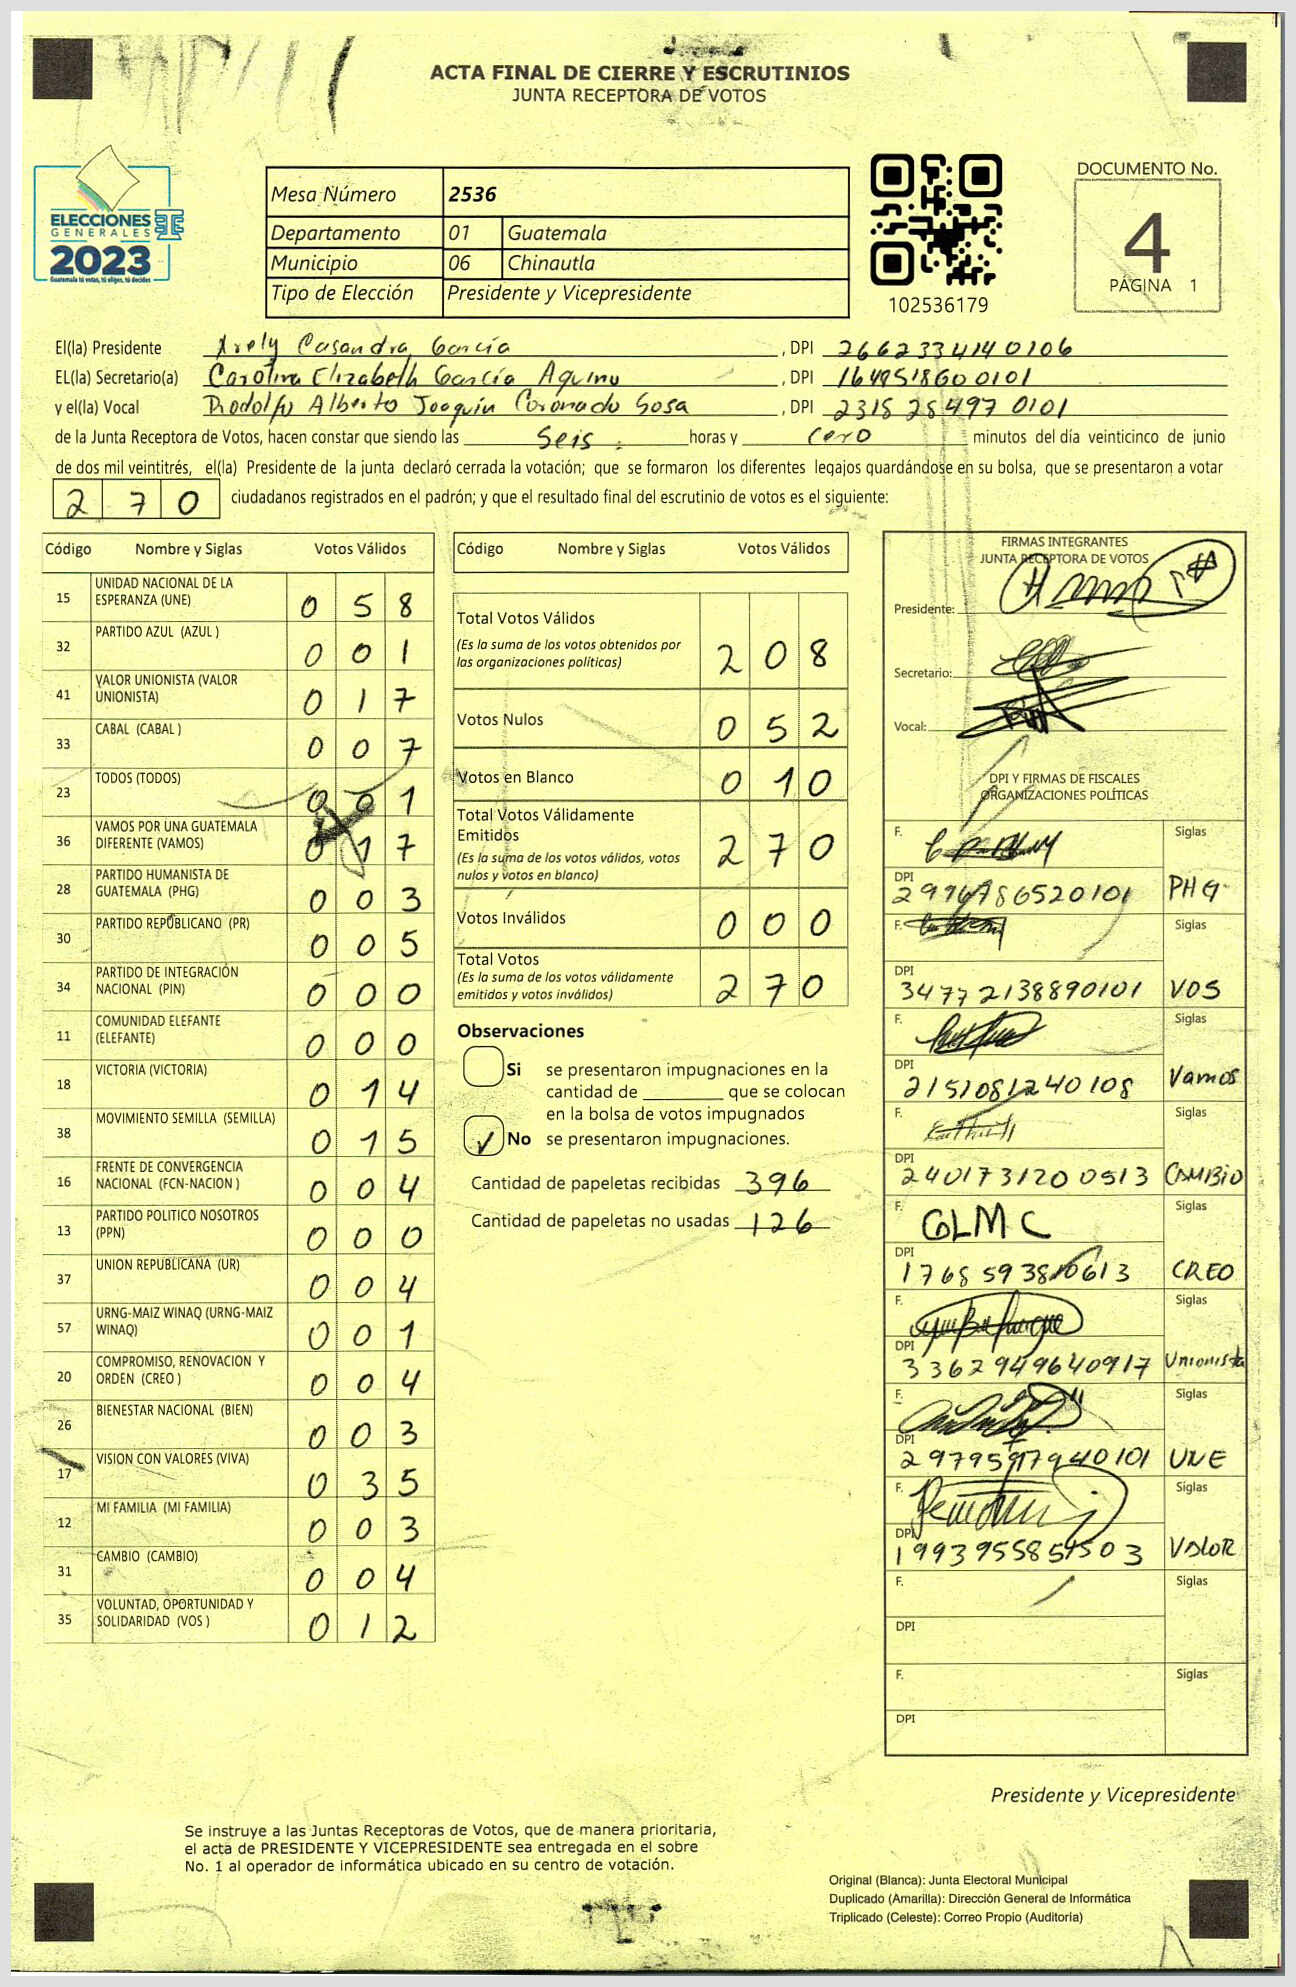 ACTA FINAL DE CIERRE Y ESCRUTINIOS
JUNTA RECEPTORA DE VOTOS
ELECCIONES
GENERALES
2023
Guatemala tú votas, tú eliges, tú decides
Mesa Número 2536
Departamento 01 Guatemala
Municipio 06 Chinautla
Tipo de Elección Presidente y Vicepresidente
102536179
DOCUMENTO No.
4
PÁGINA 1
El(la) Presidente Arely Casandra García , DPI 2662334140106
EL(la) Secretario(a) Carolina Elizabeth García Aquino , DPI 1649518600101
y el(la) Vocal Rodolfo Alberto Joaquín Coronado Sosa , DPI 2318 28497 0101
de la Junta Receptora de Votos, hacen constar que siendo las Seis horas y cero minutos del día veinticinco de junio
de dos mil veintitrés, el(la) Presidente de la junta declaró cerrada la votación; que se formaron los diferentes legajos quardándose en su bolsa, que se presentaron a votar
270 ciudadanos registrados en el padrón; y que el resultado final del escrutinio de votos es el siguiente:
Código Nombre y Siglas Votos Válidos
15 UNIDAD NACIONAL DE LA ESPERANZA (UNE) 058
32 PARTIDO AZUL (AZUL ) 001
41 VALOR UNIONISTA (VALOR UNIONISTA) 017
33 CABAL (CABAL ) 007
23 TODOS (TODOS) 001
36 VAMOS POR UNA GUATEMALA DIFERENTE (VAMOS) 017
28 PARTIDO HUMANISTA DE GUATEMALA (PHG) 003
30 PARTIDO REPUBLICANO (PR) 005
34 PARTIDO DE INTEGRACIÓN NACIONAL (PIN) 000
11 COMUNIDAD ELEFANTE (ELEFANTE) 000
18 VICTORIA (VICTORIA) 014
38 MOVIMIENTO SEMILLA (SEMILLA) 015
16 FRENTE DE CONVERGENCIA NACIONAL (FCN-NACION ) 004
13 PARTIDO POLITICO NOSOTROS (PPN) 000
37 UNION REPUBLICANA (UR) 004
57 URNG-MAIZ WINAQ (URNG-MAIZ WINAQ) 001
20 COMPROMISO, RENOVACION Y ORDEN (CREO ) 004
26 BIENESTAR NACIONAL (BIEN) 003
17 VISION CON VALORES (VIVA) 035
12 MI FAMILIA (MI FAMILIA) 003
31 CAMBIO (CAMBIO) 004
35 VOLUNTAD, OPORTUNIDAD Y SOLIDARIDAD (VOS ) 012
Código Nombre y Siglas Votos Válidos
Total Votos Válidos 208
(Es la suma de los votos obtenidos por
las organizaciones políticas)
Votos Nulos 052
Votos en Blanco 010
Total Votos Válidamente
Emitidos 270
(Es la suma de los votos válidos, votos
nulos y votos en blanco)
Votos Inválidos 000
Total Votos 270
(Es la suma de los votos válidamente
emitidos y votos inválidos)
Observaciones
Si se presentaron impugnaciones en la
cantidad de ________ que se colocan
en la bolsa de votos impugnados
No se presentaron impugnaciones.
Cantidad de papeletas recibidas 396
Cantidad de papeletas no usadas 126
FIRMAS INTEGRANTES
JUNTA RECEPTORA DE VOTOS
Presidente:
Secretario:
Vocal:
DPI Y FIRMAS DE FISCALES
ORGANIZACIONES POLÍTICAS
F. Siglas
DPI 2996786520101 PHG
F. Siglas
DPI 3477213889 0101 VOS
F. Siglas
DPI 2151081240108 Vamos
F. Siglas
DPI 2401731200513 CAMBIO
F. GLMC Siglas
DPI 1768593810613 CREO
F. Siglas
DPI 3362949640917 Unionista
F. Siglas
DPI 2979597940101 UNE
F. Siglas
DPI 1993955851503 VALOR
F. Siglas
DPI
F. Siglas
DPI
Presidente y Vicepresidente
Se instruye a las Juntas Receptoras de Votos, que de manera prioritaria,
el acta de PRESIDENTE Y VICEPRESIDENTE sea entregada en el sobre
No. 1 al operador de informática ubicado en su centro de votación.
Original (Blanca): Junta Electoral Municipal
Duplicado (Amarilla): Dirección General de Informática
Triplicado (Celeste): Correo Propio (Auditoría)